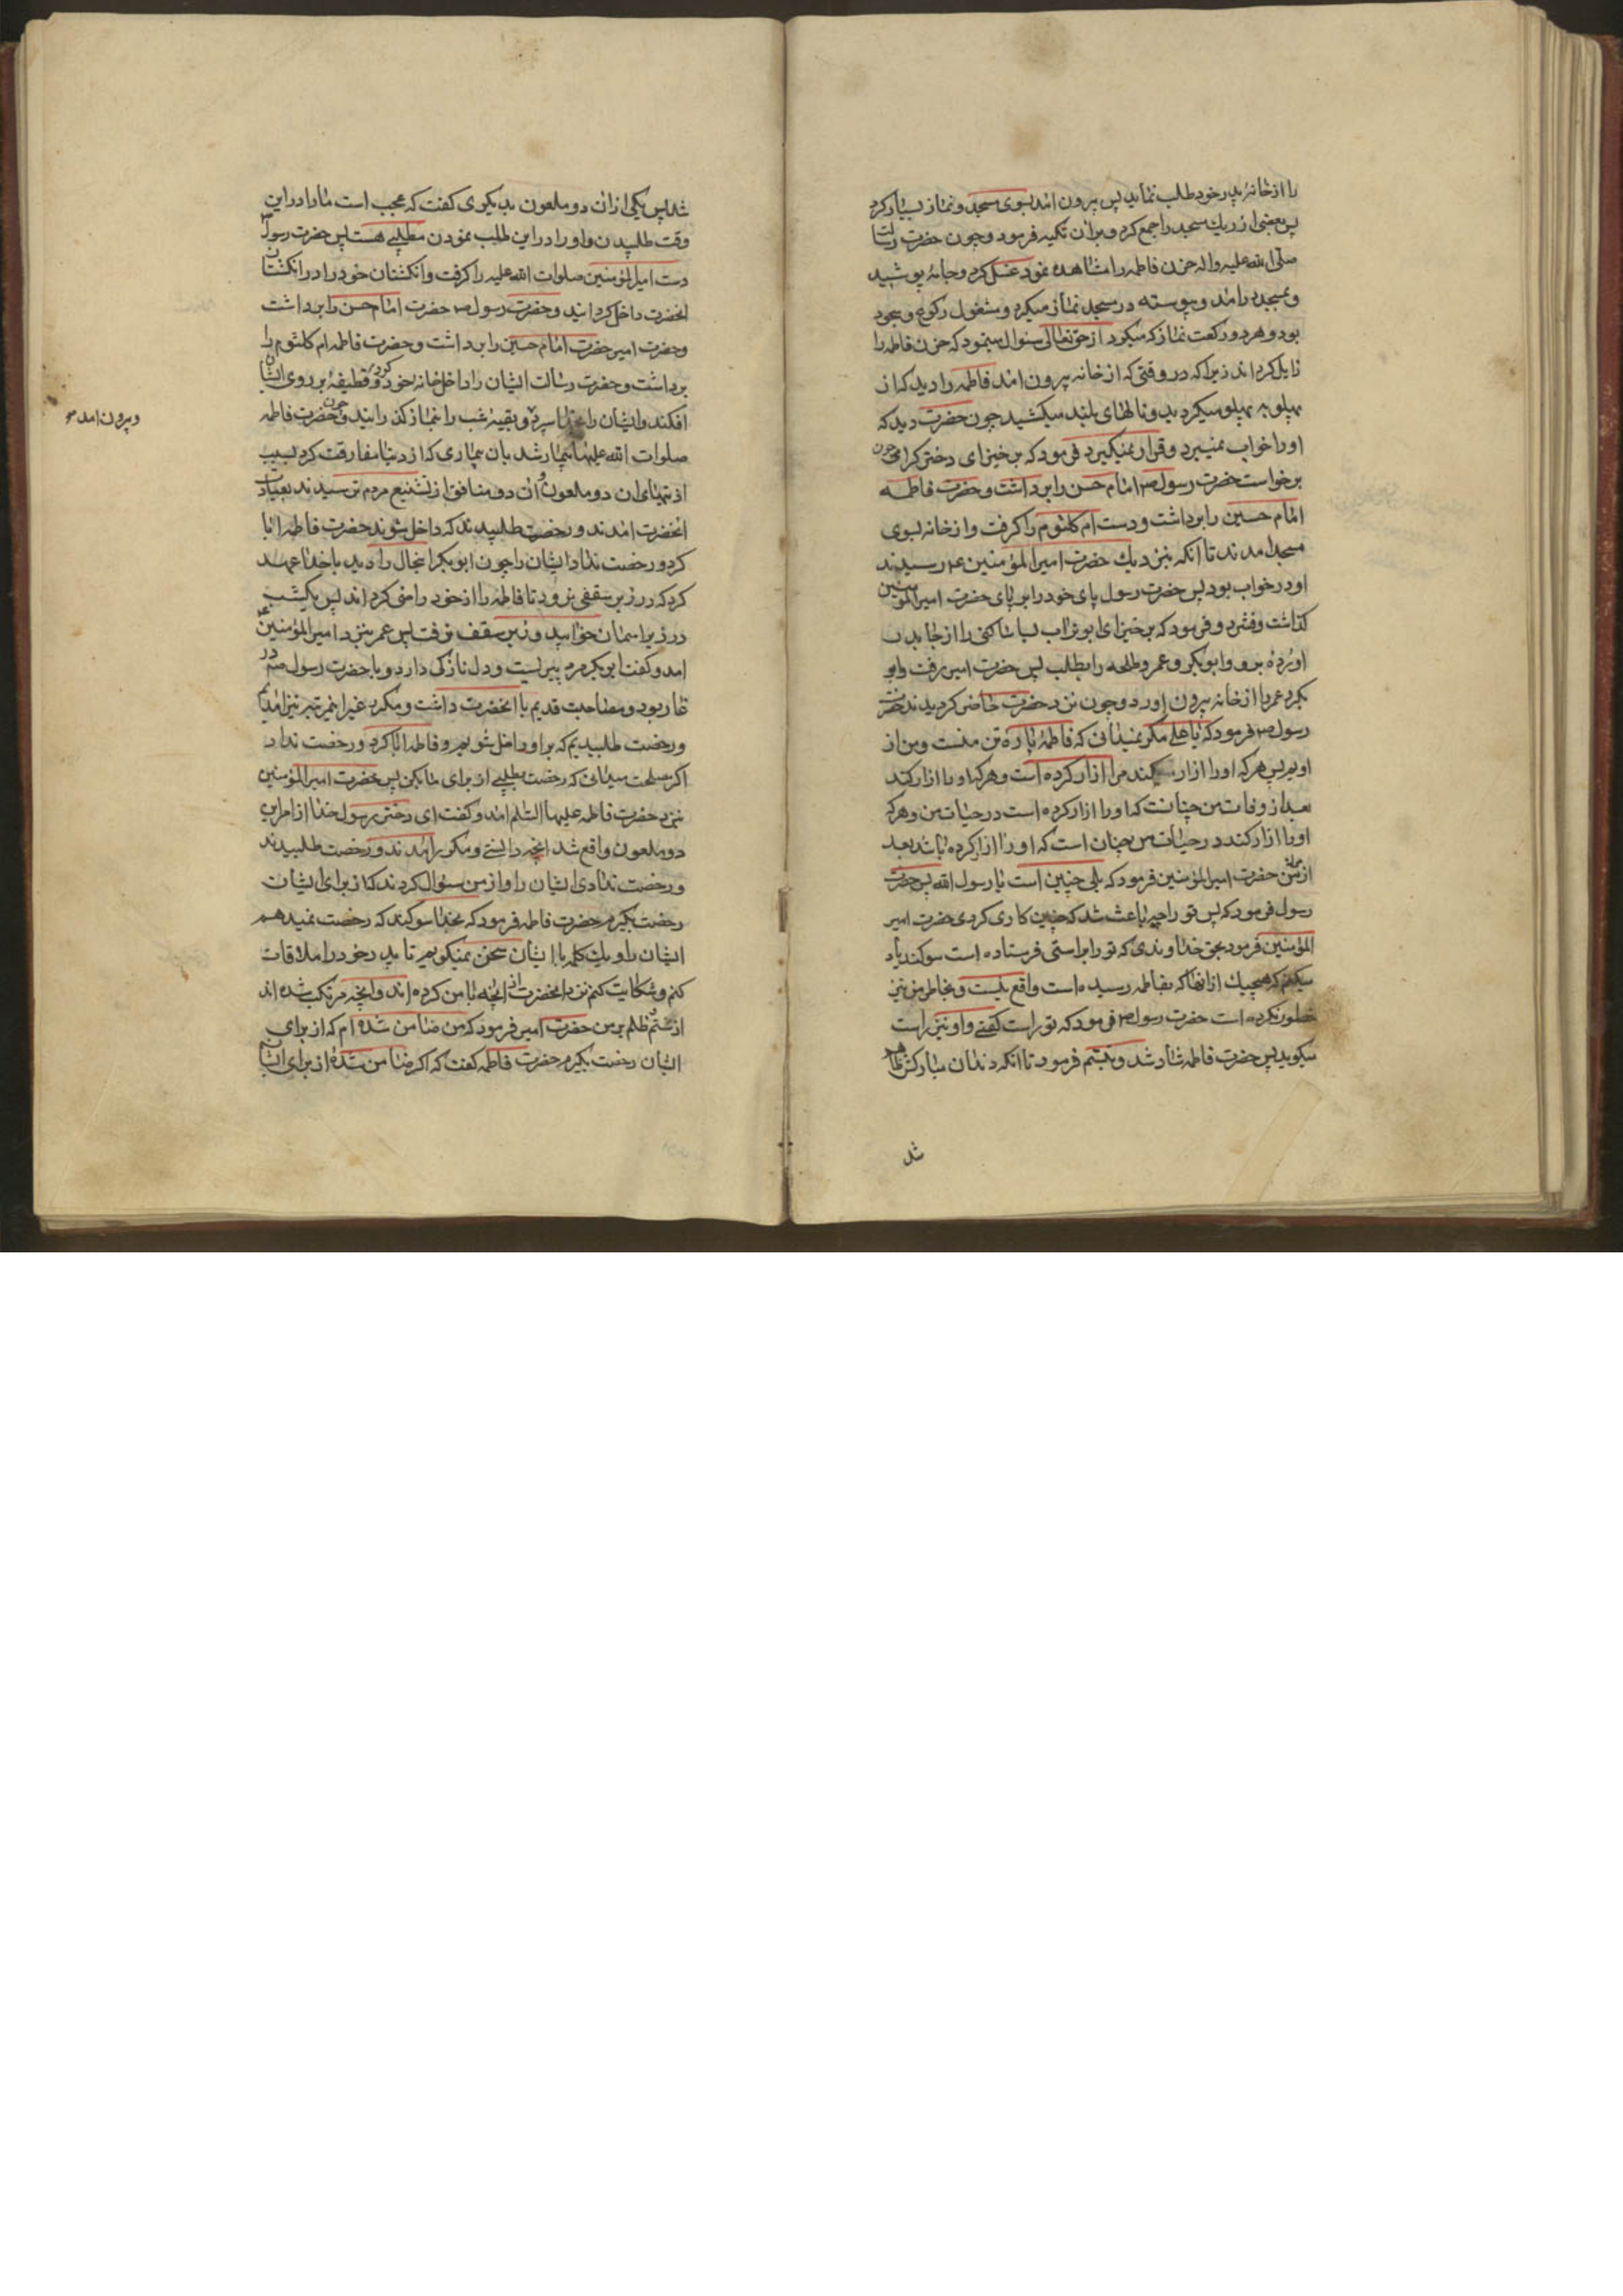 را از خانهٔ پدر خود طلب نماید پس بیرون امد بسوی مسجد و نماز بسیار کرد
پس بعضی از ریك مسجد را جمع کرد و بران تکیه فرمود و چون حضرت رسالت
صلی الله علیه واله حزن فاطمه را مشاهده نمود غسل کرد و جامهٔ پوشید
و بمسجد در امد و پیوسته در مسجد نماز میکرد و مشغول رکوع و سجود
بود و هر دو رکعت نماز که میکرد از حق تعالی سئوال مینمود که حزن فاطمه را
زایل کرداند زیرا که در وقتی که از خانه بیرون امد فاطمه را دید که از
پهلو به پهلو میکردید و نالهای بلند میکشید چون حضرت دید که
او را خواب نمیبرد و قرار نمیکیرد فرمود که برخیز ای دختر کرامی چون
برخواست حضرت رسول ص امام حسن را برداشت و حضرت فاطمه
امام حسین را برداشت و دست ام کلثوم را کرفت و از خانه بسوی
مسجد امدند تا انکه بنزدیك حضرت امیرالمؤمنین ع رسیدند
او در خواب بود پس حضرت رسول پای خود را بر پای حضرت امیرالمؤمنین
کذاشت و فشرد و فرمود که برخیز ای ابو تراب بسا ساکنی را از جا بدر
اورده برو و ابو بکر و عمر و طلحه را بطلب پس حضرت امیر رفت و ابو
بکر و عمر را از خانه بیرون اورد و چون نزد حضرت حاضر کردیدند حضرت
رسول ص فرمود که یا علی مکر نمیدانی که فاطمه پارهٔ تن منست و من از
اویم پس هر که او را ازار کند مرا ازار کرده است و هر که او را ازار کند
بعد از وفات من چنانست که او را ازار کرده است در حیات من و هر که
او را ازار کند در حیات من چنان است که او را ازار کرده باشد بعد
از مرك من حضرت امیرالمؤمنین فرمود که بلی چنین است یا رسول الله پس حضرت
رسول فرمود که پس تو را چه باعث شد که چنین کاری کردی حضرت امیر
المؤمنین فرمود بحق خداوندی که تو را براستی فرستاده است سوکند یاد
میکنم که هیچیك از انها که بفاطمه رسیده است واقع نیست و بخاطر من نیز
خطور نکرده است حضرت رسول ص فرمود که تو راست کفتی و او نیز راست
میکوید پس حضرت فاطمه شاد شد و تبسم فرمود تا انکه دندان مبارکش ظاهر
شد
شد پس یکی از ان دو ملعون بدیکری کفت که عجب است ما را در این
وقت طلبیدن و او را در این طلب نمودن مطلبی هست پس حضرت رسول ص
دست امیرالمؤمنین صلوات الله علیه را کرفت و انکشتان خود را در انکشتان
انحضرت داخل کردانید و حضرت رسول ص حضرت امام حسن را برداشت
و حضرت امیر حضرت امام حسین را برداشت و حضرت فاطمه ام کلثوم را
برداشت و حضرت رسالت ایشان را داخل خانه خود کرد و قطیفهٔ بر روی ایشان
افکند و ایشان را بخدا سپرد و بقیه شب را بنماز کذرانید و چون حضرت فاطمه
و بیرون امد ص
صلوات الله علیها بیمار شد بان بیماری که از دنیا مفارقت کرد بسبب
ستمهای ان دو ملعون و ان دو منافق از تشنیع مردم ترسیدند بعیادت
انحضرت امدند و رخصت طلبیدند که داخل شوند حضرت فاطمه ابا
کرد و رخصت نداد ایشان را چون ابو بکر انحال را دید با خدا عهد
کرد که در زیر سقفی نرود تا فاطمه را از خود راضی کرداند پس یکشب
در زیر اسمان خوابید و زیر سقف نرفت پس عمر بنزد امیرالمؤمنین ع
امد و کفت ابو بکر مرد پیریست و دل نازکی دارد و با حضرت رسول ص در
غار بود و مصاحبت قدیم با انحضرت داشت و مکرر غیر این مرتبه نیز امدیم
و رخصت طلبیدیم که بر او داخل شویم و فاطمه ابا کرد و رخصت نداد
اکر مصلحت میدانی که رخصت بطلبی از برای ما بکن پس حضرت امیرالمؤمنین
بنزد حضرت فاطمه علیها السلام امد و کفت ای دختر رسول خدا از امر این
دو ملعون واقع شد انچه دانستی و مکرر امدند و رخصت طلبیدند
و رخصت ندادی ایشان را و از من سئوال کردند که از برای ایشان
رخصت بکیرم حضرت فاطمه فرمود که بخدا سوکند که رخصت نمیدهم
ایشان را و یك کلمه با ایشان سخن نمیکویم تا پدر خود را ملاقات
کنم و شکایت کنم نزد انحضرت از انچه با من کرده اند و انچه مرتکب شده اند
از ستم و ظلم بر من حضرت امیر فرمود که من ضامن شده ام که از برای
ایشان رخصت بکیرم حضرت فاطمه کفت که اکر ضامن شدهٔ از برای ایشان